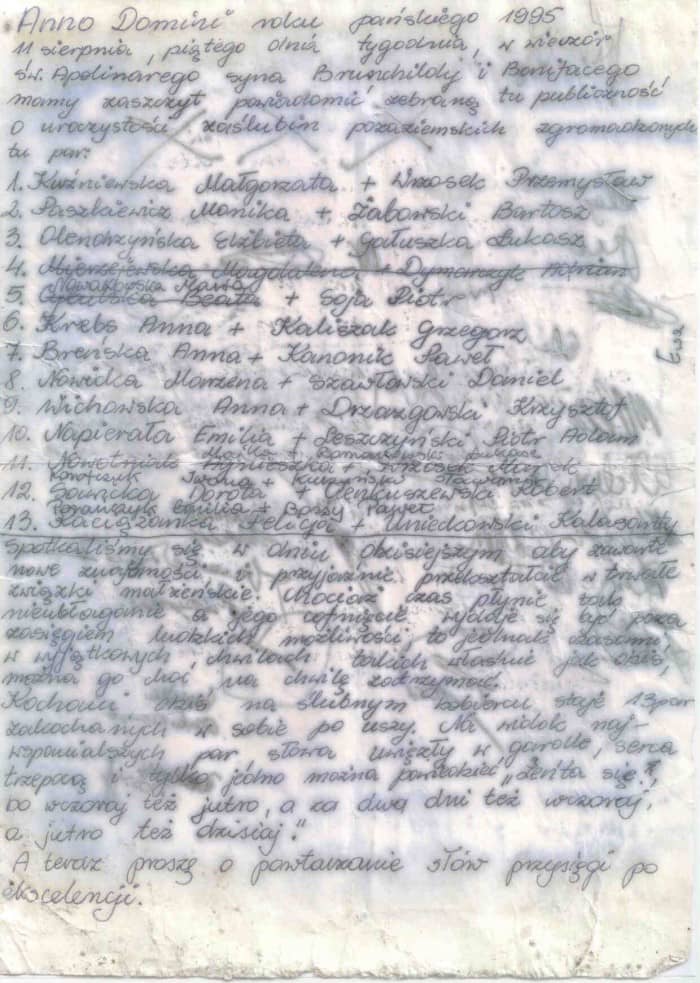 "Anno Domini" roku pańskiego 1995
11 sierpnia, piątego dnia tygodnia, w wieczór
św. Apolinarego syna Brunchildy i Bonifacego
mamy zaszczyt powiadomić zebraną tu publiczność
o uroczystości zaślubin pozaziemskich zgromadzonych
tu par:
1. Kuźniewska Małgorzata + Wrzosek Przemysław
2. Paszkiewicz Monika + Żabowski Bartosz
3. Olendrzyńska Elżbieta + Gałuszka Łukasz
4. Mierzejewska Magdalena + Adrian
Nowakowska Marta
5. Beata + Soja Piotr
6. Krebs Anna + Kaliszak Grzegorz
Ewa
7. Breńska Anna + Kanonik Paweł
8. Nowicka Marzena + Szawłowski Daniel
9. Wichowska Anna + Drzazgowski Krzysztof
10. Napierała Emilia + Leszczyński Piotr Adam
11. Agnieszka +
Iwona + Kuczyński Sławomir
12. Sawicka Dorota + Olenkuszewski Robert
Emilia + Paweł
13. Felicja + Uniedkowski Kalasanty
spotkaliśmy się w dniu dzisiejszym aby zawarte
nowe znajomości i przyjaźnie przekształcić w trwałe
związki małżeńskie. Chociaż czas płynie tak
nieubłaganie a jego cofnięcie wydaje się być poza
zasięgiem ludzkich możliwości, to jednak czasami
w wyjątkowych chwilach takich właśnie jak dziś,
można go choć na chwilę zatrzymać.
Kochani dziś na ślubnym kobiercu staje 13 par
zakochanych w sobie po uszy. Na widok naj-
wspanialszych par słowa uwięzły w gardle, serca
trzepocą i tylko jedno można powiedzieć „Żeńta się,
bo wczoraj też jutro, a za dwa dni też wczoraj,
a jutro też dzisiaj."
A teraz proszę o powtarzanie słów przysięgi po
ekscelencji.